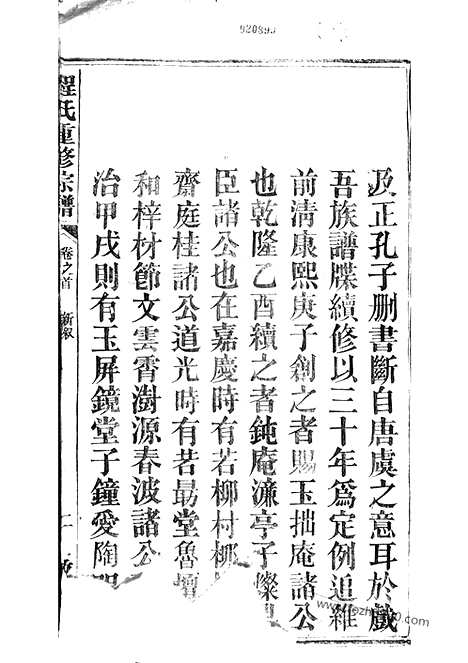 920893
及正孔子刪書斷自唐虞之意耳於戲
吾族譜牒續修以三十年爲定例追維
前清康熙庚子創之者賜玉拙庵諸公
也乾隆乙酉續之者鈍庵濂亭子燦
臣諸公也在嘉慶時有若柳村
齋庭桂諸公道光時有若最堂魯
和梓材節文雲霄澍源春波諸公
治甲戌則有玉屏鏡堂子鐘愛陶
程氏重修宗譜
卷之首
新敘